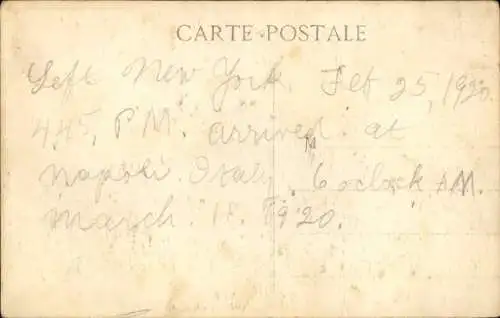 CARTE-POSTALE
Left New York. Feb 25, 1920.
445, P.M. arrived. at
M
Napoli. Italy. 6 oclock A.M.
March. 1920.